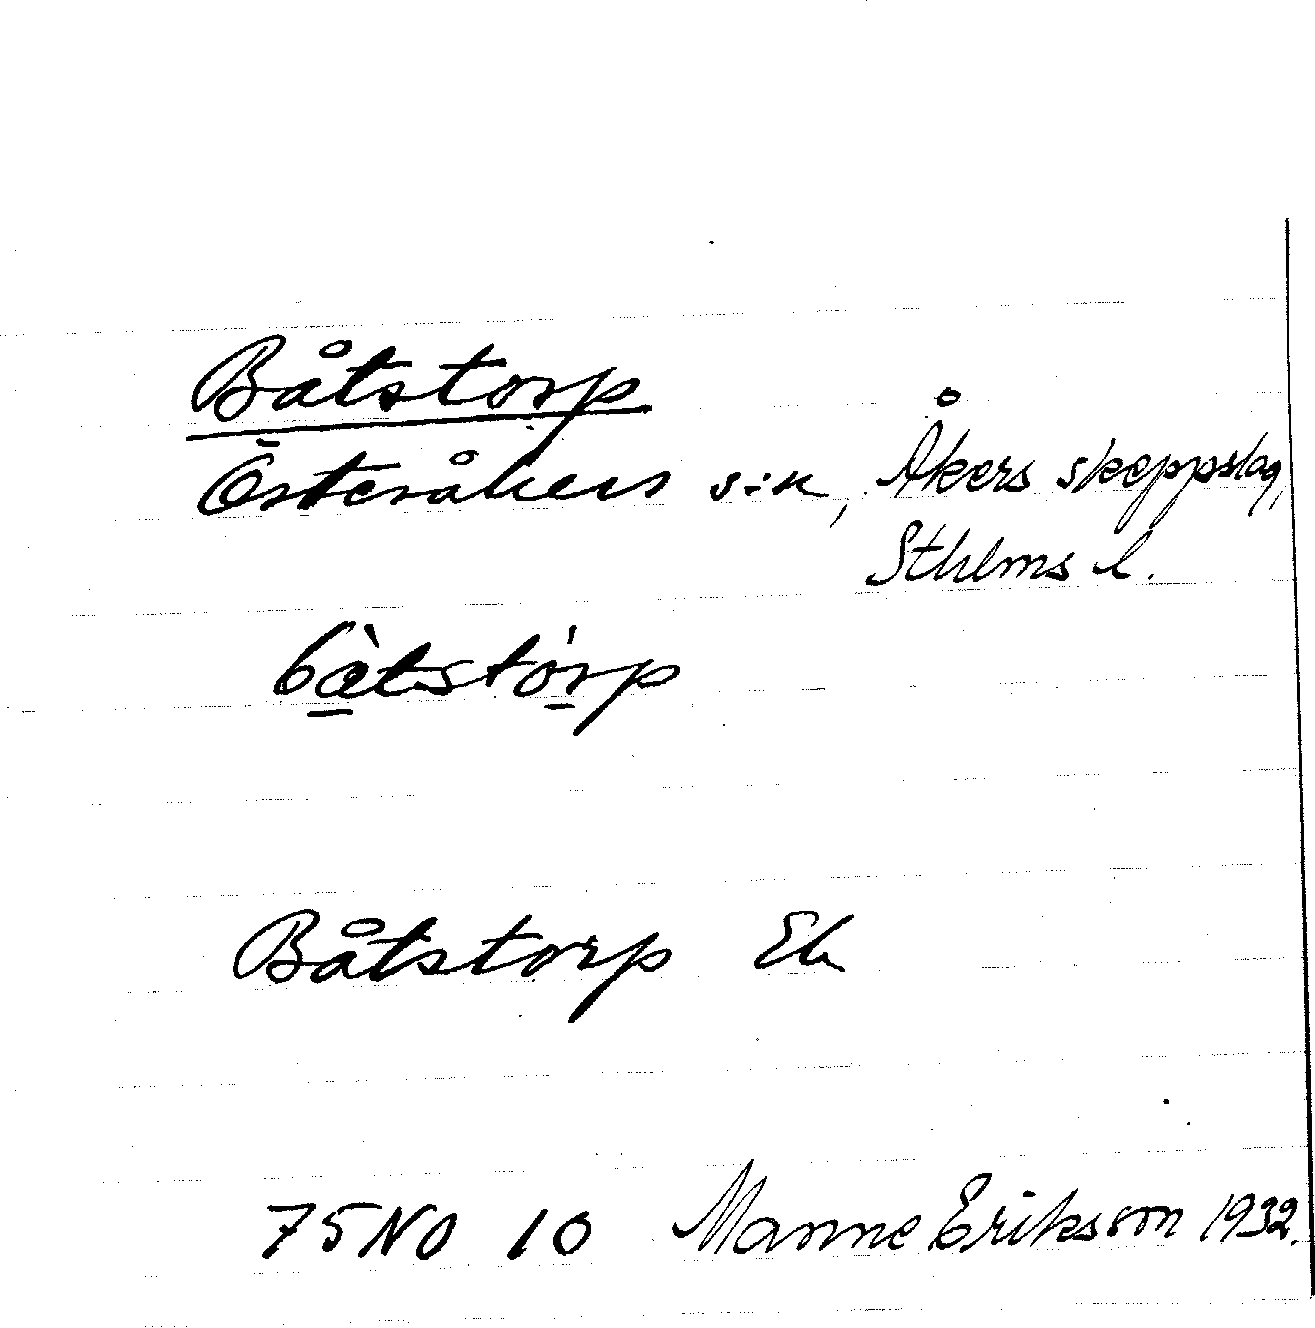 Båtstorp
Österåkers s:n, Åkers skeppslag,
Sthlms l.
bàtstórp
Båtstorp Ek
75 NO 10 Manne Eriksson 1932.